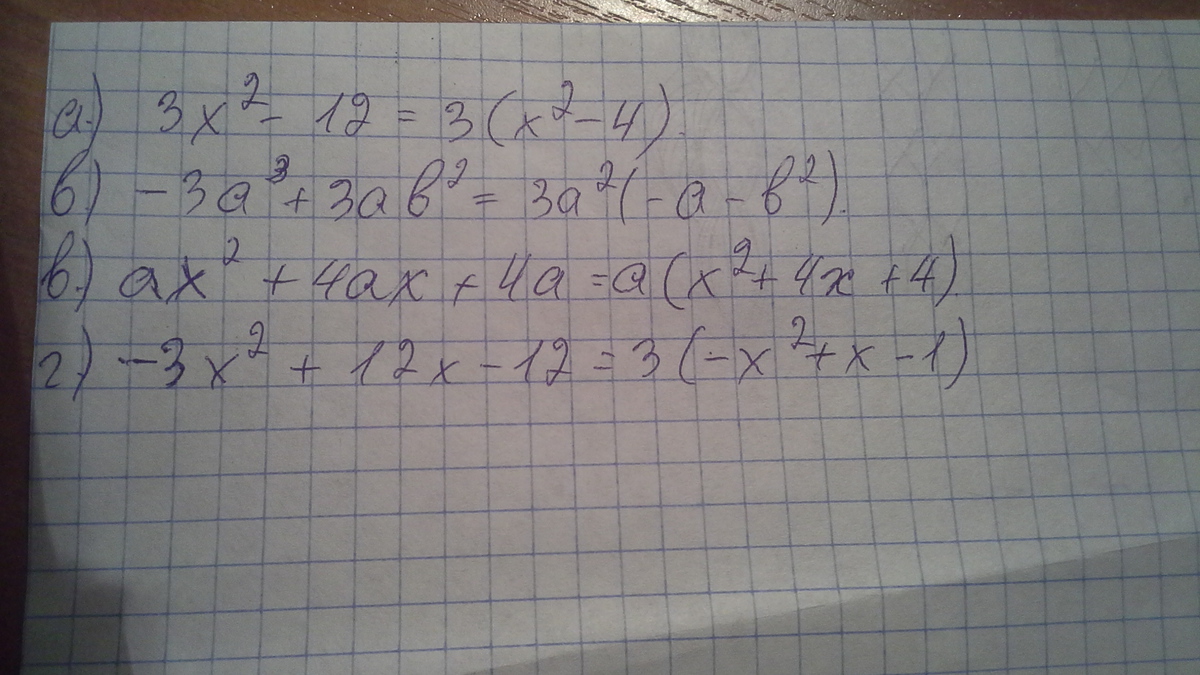 а.) 3x² - 12 = 3(x² - 4).
в) -3a³ + 3ab² = 3a²(-a - b²).
в.) ax² + 4ax + 4a = a(x² + 4x + 4).
г.) -3x² + 12x - 12 = 3(-x² + x - 1)